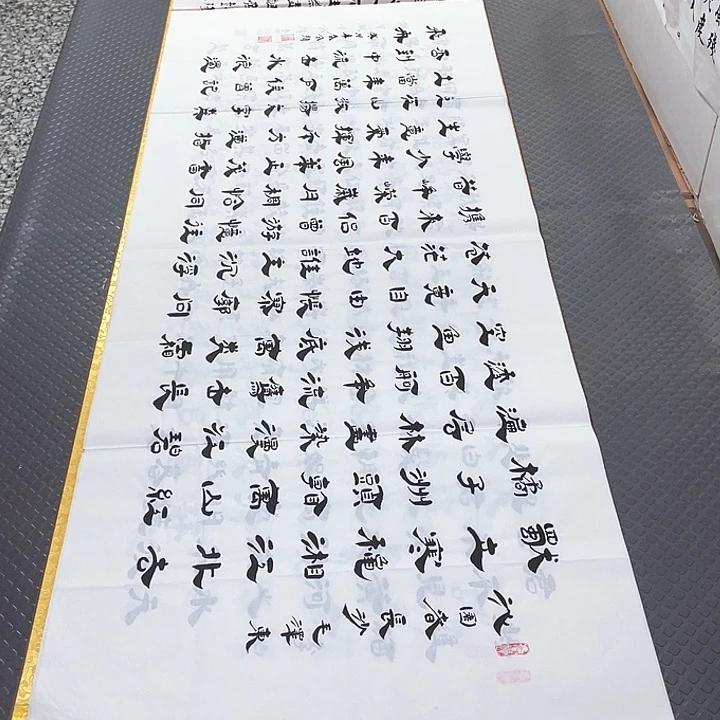 沁園春長沙毛澤東
獨立寒穐湘江北去
橘子洲頭看萬山紅
遍層林盡染漫江碧
透百舸爭流鷹擊長
空魚翔淺底萬類霜
天竟自由悵寥廓問
蒼茫大地誰主沉浮
攜來百侶曾游憶往
昔崢嶸歲月稠恰同
學少年風華正茂書
生意氣揮斥方遒指
點江山激揚文字糞
土當年萬户侯曾記
否到中流擊水浪遏
飛舟